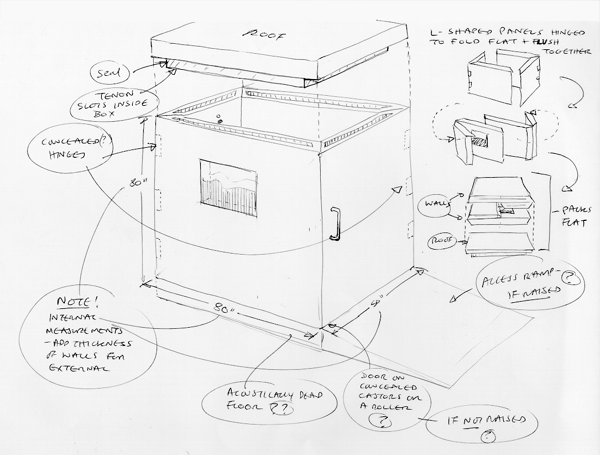 ROOF
SEAL
TENON
SLOTS INSIDE
BOX
CONCEALED?
HINGES
80"
80"
NOTE!
INTERNAL
MEASUREMENTS
- ADD THICKNESS
OF WALLS FOR
EXTERNAL
ACOUSTICALLY DEAD
FLOOR ??
DOOR ON
CONCEALED
CASTORS OR
A ROLLER
?
IF NOT RAISED
ACCESS RAMP -
IF RAISED ?
L-SHAPED PANELS HINGED
TO FOLD FLAT + FLUSH
TOGETHER
WALLS
ROOF
PACKS
FLAT